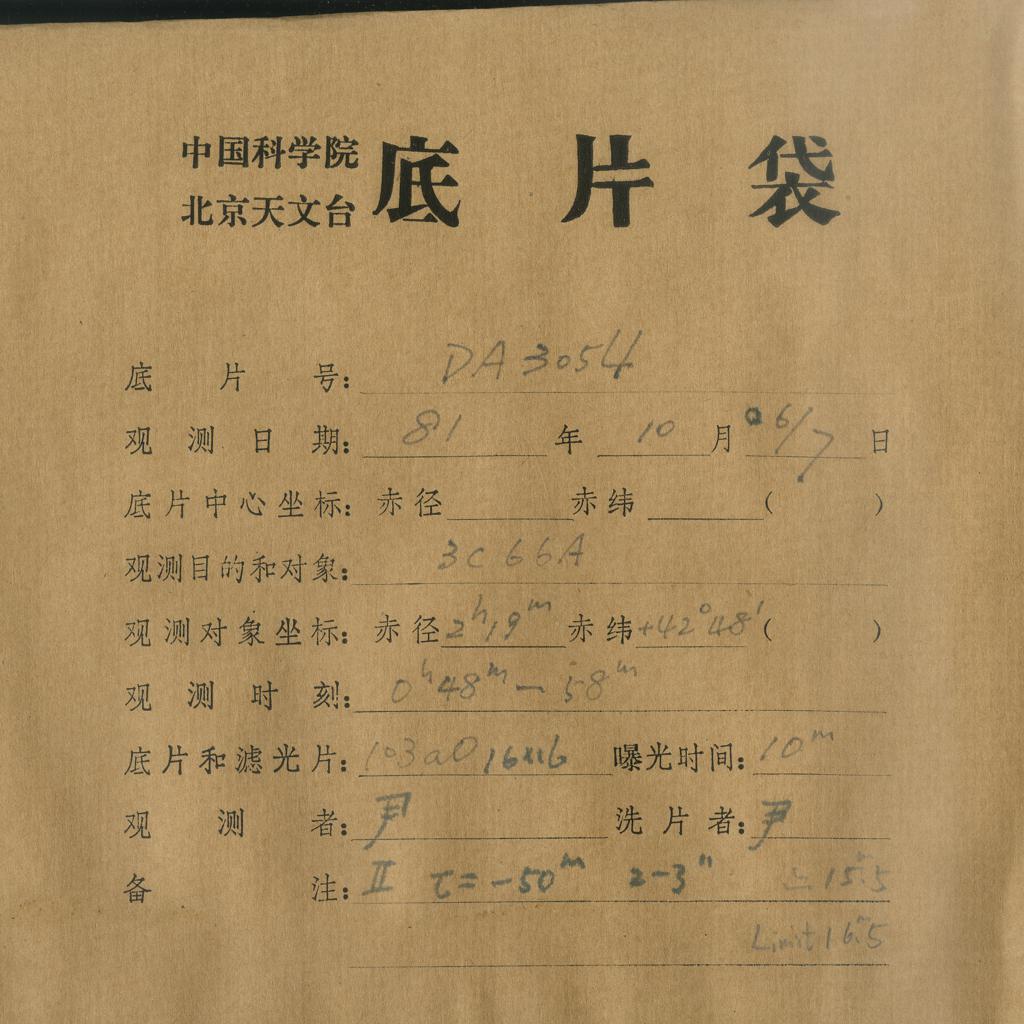 中国科学院
北京天文台
底片袋
底片号: DA 3054
观测日期: 81 年 10 月 06/7 日
底片中心坐标: 赤径 赤纬 ( )
观测目的和对象: 3C 66A
观测对象坐标: 赤径 2h19m 赤纬 +42°48' ( )
观测时刻: 0h48m — 58m
底片和滤光片: 103aO 16x16 曝光时间: 10m
观测者: 尹 洗片者: 尹
备注: II τ = -50m 2-3" 15.5
Limit 16.5